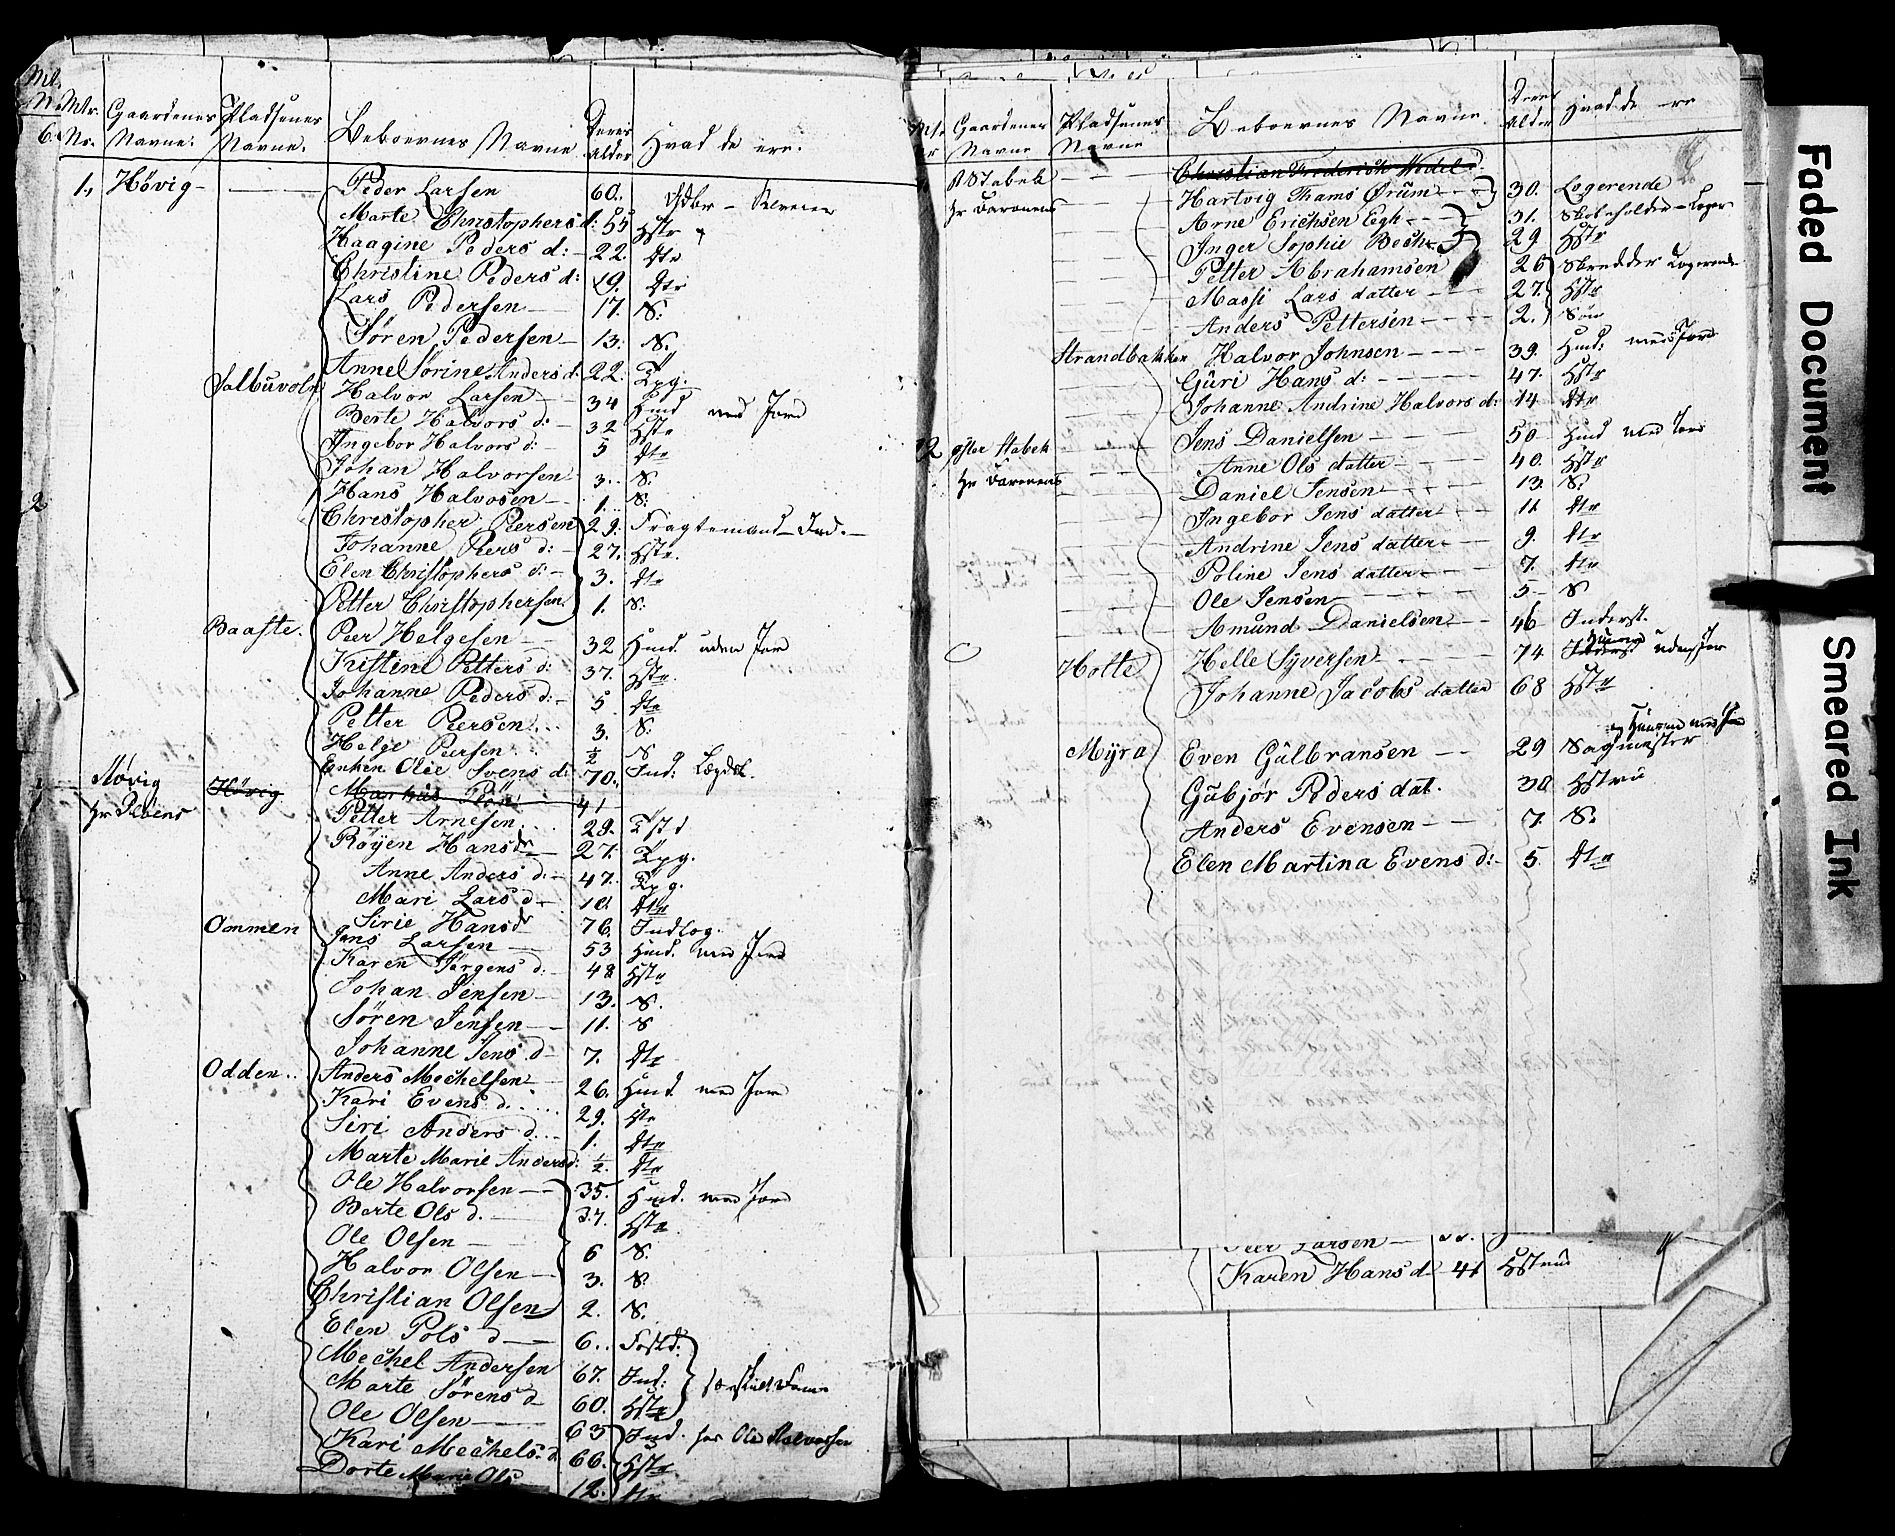 Mtr. Nr. Gaardenes Navne. Pladsenes Navne. Beboernes Navne Deres Alder Hvad de ere.
1. Hövig Peder Larsen 60.
Marte Christophers d: 55 Hstr
Haagine Peders d: 22. dtr
Christine Peders d: 19. dtr
Lars Pedersen 17. S:
Søren Pedersen 13. S.
Anne Sørine Anders d: 22.
Halvor Larsen 34 Huusd med Jord
Berte Halvors d: 32 Hstr
Ingebor Halvors d: 5 dtr
Johan Halvorsen 3. S.
Hans Halvosen 1. S.
Christopher Peersen 29. Fragtemand Ind.
Johanne Peers d: 27. Hstr.
Elen Christophers d: 3. dtr
Petter Christophersen 1. S:
Baaste. Peer Helgesen 32 Huusd uden Jord
Kistine Petters d: 37. Hstr.
Johanne Peders d: 5 dtr
Petter Peersen 3. S.
Helge Peersen ½ S
Enken Olie Svens d: 70. Ind: Lægdsl.
Hövig Hövig 41
Petter Arnesen 29.
Røyen Hansdr 27.
Anne Anders d. 47.
Mari Lars d 10. dtr
Sirie Hansdr 76. Indlog.
Ommen Jens Larsen 53 Huusd. med Jord
Karen Jørgens d. 48 Hstr
Johan Jensen 13. S.
Søren Jensen 11. S
Johanne Jens d 7. dtr
Odden.. Anders Mechelsen 26. Huusd med Jord
Kari Evens d. 29. Hstr
Siri Anders d. 1. dtr
Marte Marie Anders d: ½. dtr
Ole Halvorsen 35. Huusd. med Jord
Berte Ols d. 37. Hstr
Ole Olsen 6 S.
Halvor Olsen 3. S.
Christian Olsen 2. S.
Elen Pols d 6.. Fostd:
Mechel Andersen 67. Ind:
Marte Sørens d 60. Hstr
Ole Olsen 63 Ind. hos Ole Halvorsen
Kari Mechels d 66. Hstr
Dorte Marie Ols 12. dtr
Mtr Nr Gaardenes Navne Pladsenes Navne Beboernes Navne. Deres Alder Hvad de ere
Stabek Christian Frederich Wedel
Hartvig Thams Ørum 30. Logerende
Arne Erichsen Eegh 31.
Inger Sophie Boch 29 Hstr
Petter Abrahamsen 26 Skredder Logerende
Massi Lars datter 27. Hstr
Anders Pettersen 2. Søn
Strandbakken Halvor Johnsen 39. Huusd: med Jord
Guri Hans d: 47. Hstr
Johanne Andrine Halvors d: 14 dtr
øster Stabek Jens Danielsen 50 Huusd med Jord
Anne Ols datter 40. Hstr
Daniel Jensen 13. S.
Ingebor Jens datter 11 dtr
Andrine Jens datter 9. dtr
Poline Jens datter 7. dtr
Ole Jensen 5 S
Amund Danielsen 46 Inderst.
Holte Helle Syversen 74 uden Jor
Johanne Jacobs datter 68 Hstr
Myra Even Gulbransen 29 Sagmester og Huusmd med Jord
Gubjør Peders dat. 38 Hstru
Anders Evensen 7. S.
Elen Martina Evens d: 5 dtr
Peer Larsen
Karen Hans d 41 Hstrue
Faded Document
Smeared Ink